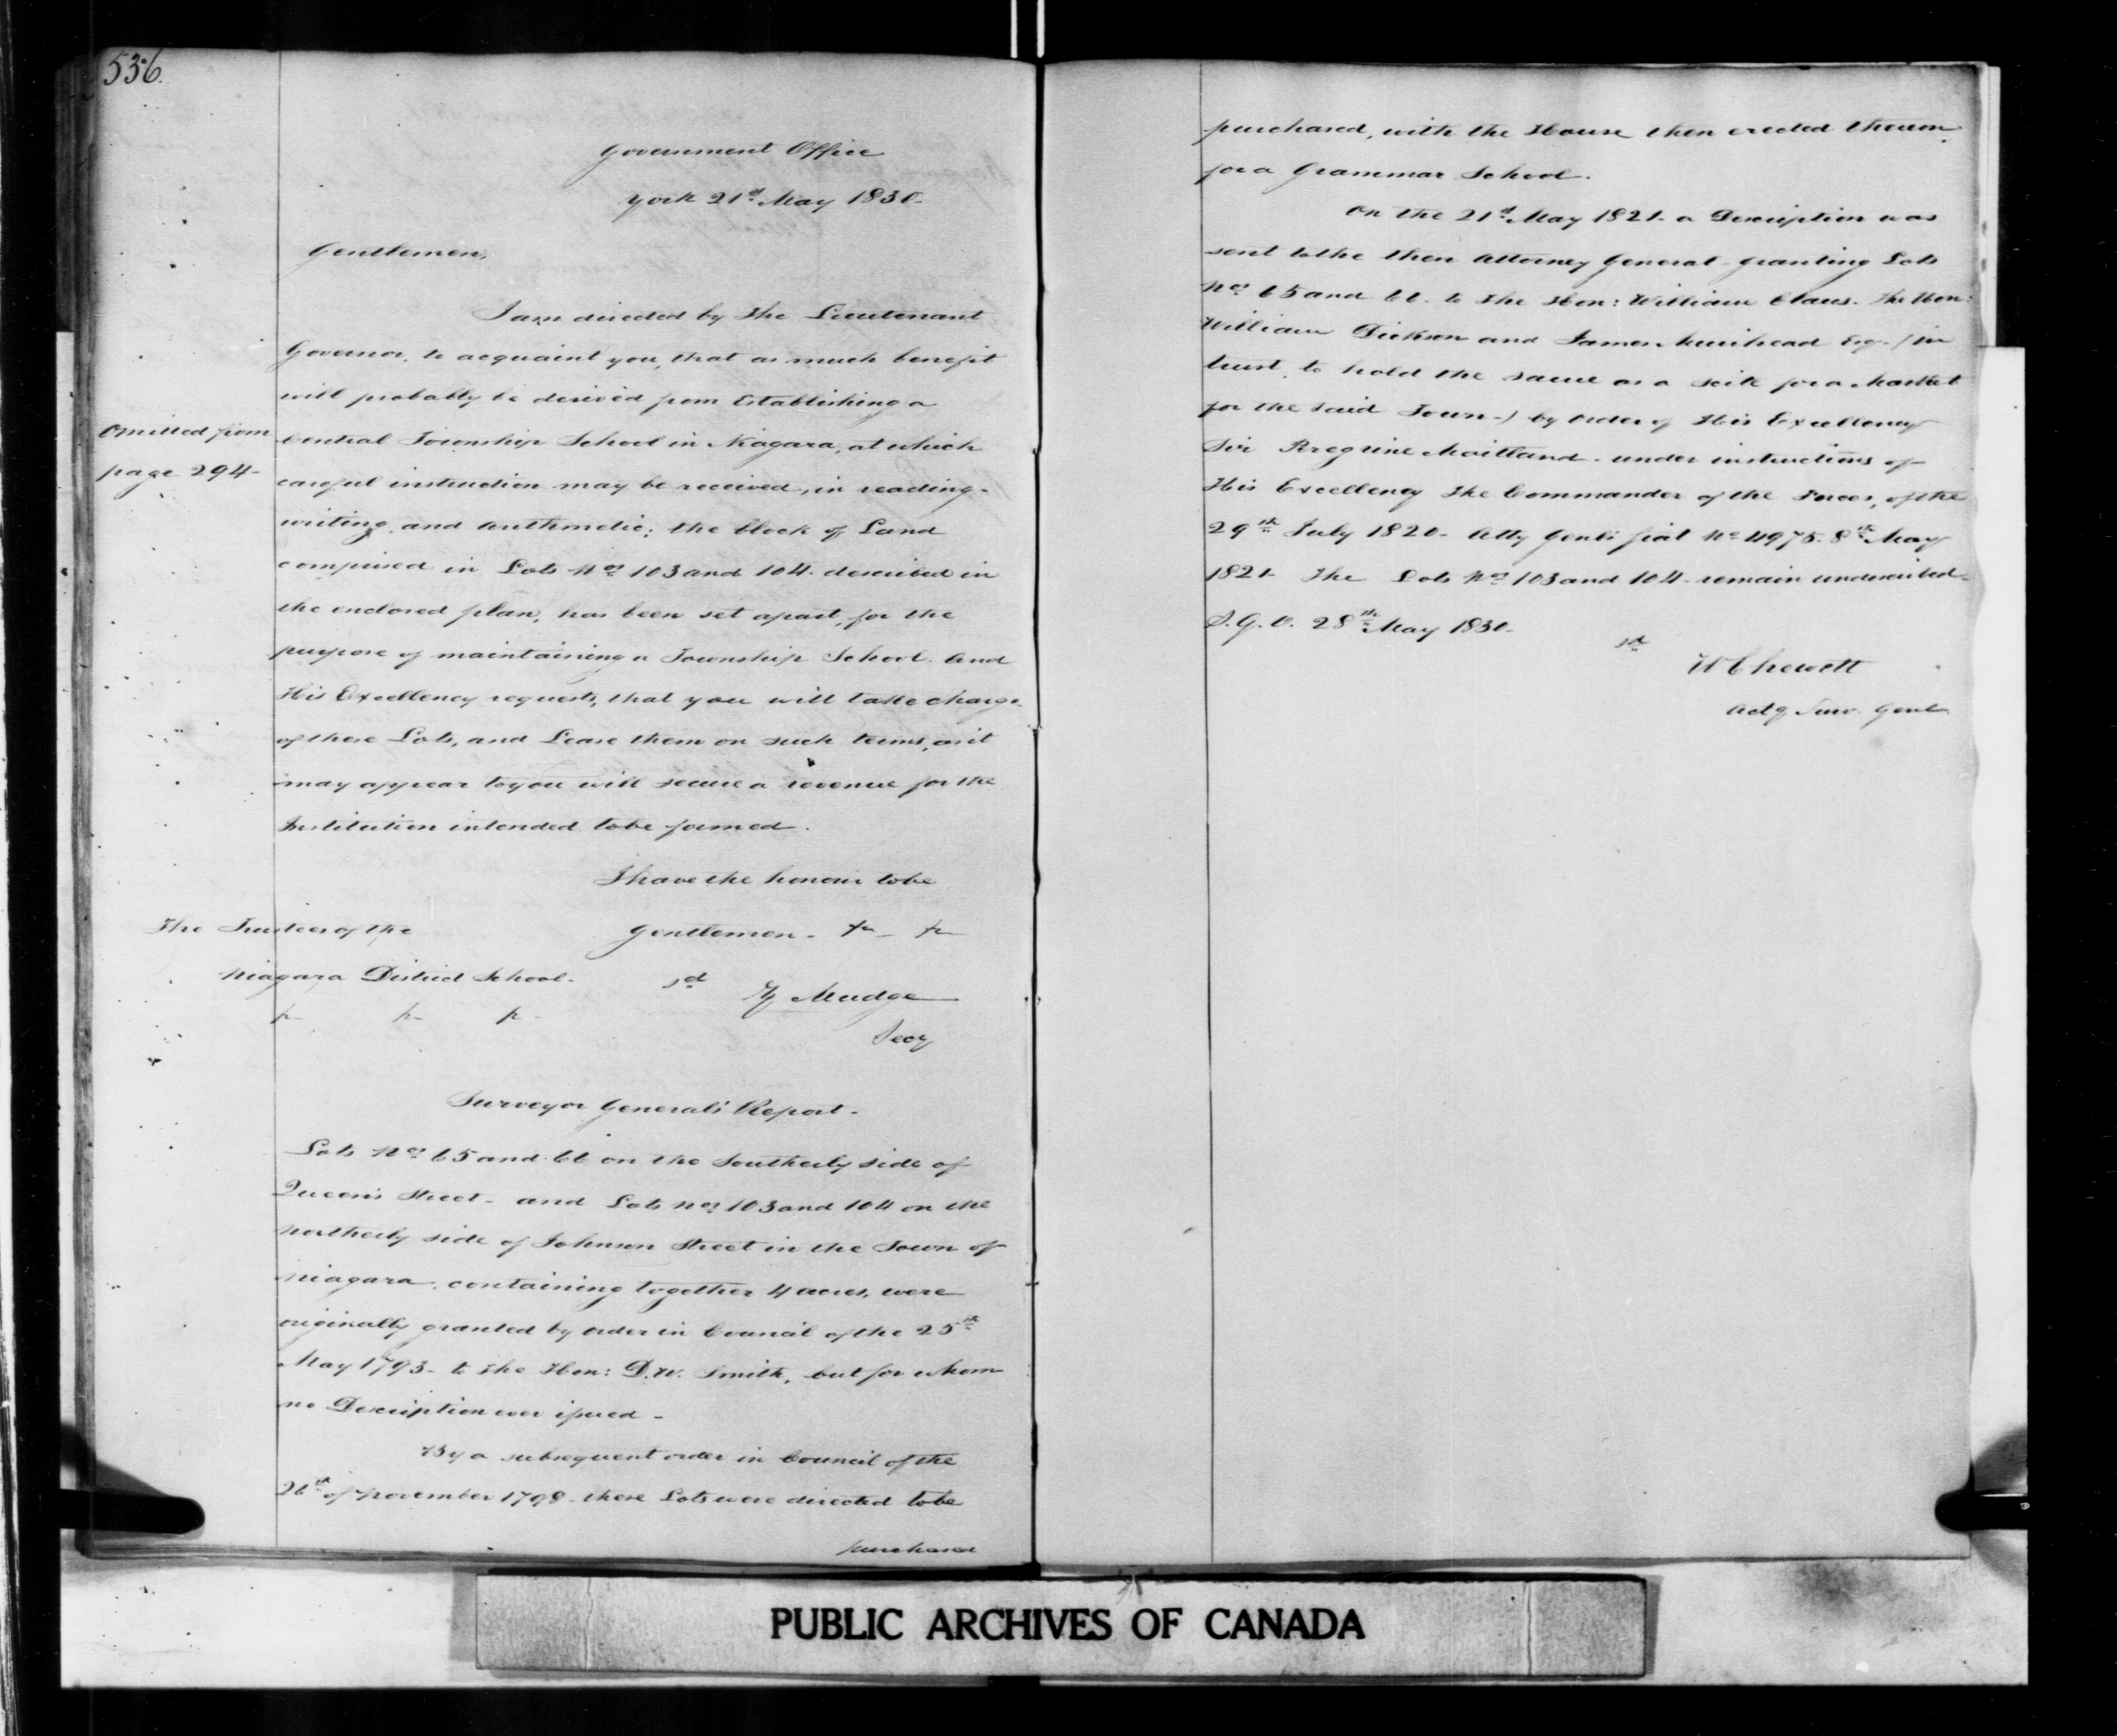 536.
Government Office
York 21st May 1830.
Gentlemen,
I am directed by The Lieutenant
Governor, to acquaint you, that as much benefit
will probably be derived from Establishing a
Omitted from
page 294-
Central Township School in Niagara, at which
careful instruction may be received, in reading-
writing, and Arithmetic; the block of Land
comprised in Lots Nos 103 and 104. described in
the enclosed plan, has been set apart, for the
purpose of maintaining a Township School. And
His Excellency requests, that you will take charge
of these Lots, and Lease them on such terms, as it
may appear to you will secure a revenue for the
Institution intended to be formed.
I have the honour to be
Gentlemen. &c - &c
The Trustees of the
Niagara District School.
&c &c &c -
sd Z Mudge
Secy
Surveyor General's Report-
Lots Nos 65 and 66 on the Southerly side of
Queen's Street- and Lots Nos 103 and 104 on the
northerly side of Johnson Street in the Town of
Niagara, containing together 4 acres, were
originally granted by order in Council of the 25th
May 1793- to The Hon: D.W. Smith, but for whom
no Description ever issued -
By a subsequent order in Council of the
26th of November 1798- these Lots were directed to be
purchased
purchased, with the House then erected thereon
for a Grammar School.
On the 21st May 1821- a Description was
sent to the then Attorney General- granting Lots
Nos 65 and 66. to The Hon: William Claus. The Hon:
William Dickson and James Muirhead Esq. (in
trust, to hold the same as a scite for a Market
for the said Town-) by order of His Excellency
Sir Peregrine Maitland. under instructions of
His Excellency The Commander of the Forces, of the
29th July 1820- Atty Genl's fiat No 4975. 8th May
1821- The Lots Nos 103 and 104- remain undescribed-
S.G.O. 28th May 1830-
sd
W Chewett
Actg Surv. Genl
PUBLIC ARCHIVES OF CANADA